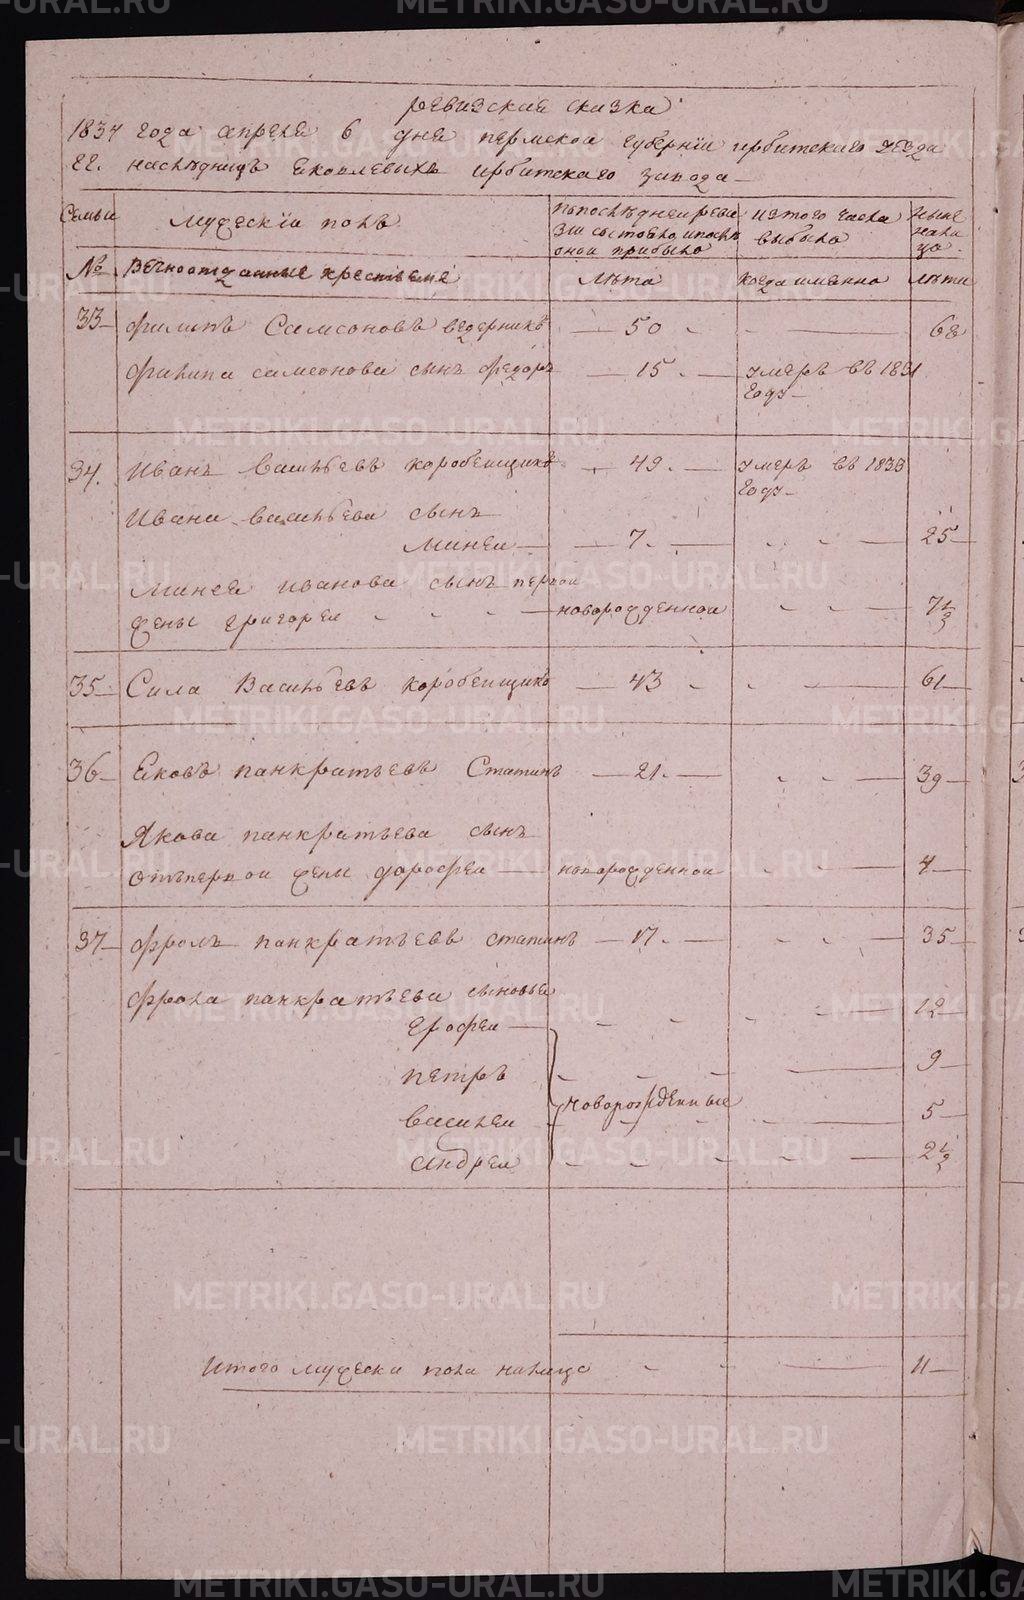 ревизская сказка
1834 года апреля 6 дня пермской губернїи ирбитскаго уезда
гг. наслѣдницъ Яковлевыхъ ирбитскаго завода
Семьи мужескїй полъ По последней ревизии состояло, и после оной прибыло из того числа выбыло ныне налицо
№ Вечноотданные крестьяне лѣта когда именно лѣта
33 филипъ Самсоновъ ведерникъ 50 68
филипа самсонова сынъ федоръ 15 умеръ въ 1831 году
34. Иванъ васильевъ коробейщиковъ 49. умеръ въ 1833 году
Ивана васильева сынъ
миней 7. 25
минея иванова сынъ первой
жены григорей новорожденной 7 1/2
35 Сила Васильевъ коробейщиковъ 43 61
36 Яковъ панкратьевъ Статинъ 21. 39
Якова панкратьева сынъ
отъ первой жены дорофей новорожденной 4
37 фролъ панкратьевъ статинъ 17. 35
фрола панкратьева сыновья
ерофей 12
петръ 9
новорожденные
василей 5
андрей 2 1/2
Итого мужеска пола налицо 11
METRIKI.GASO-URAL.RU